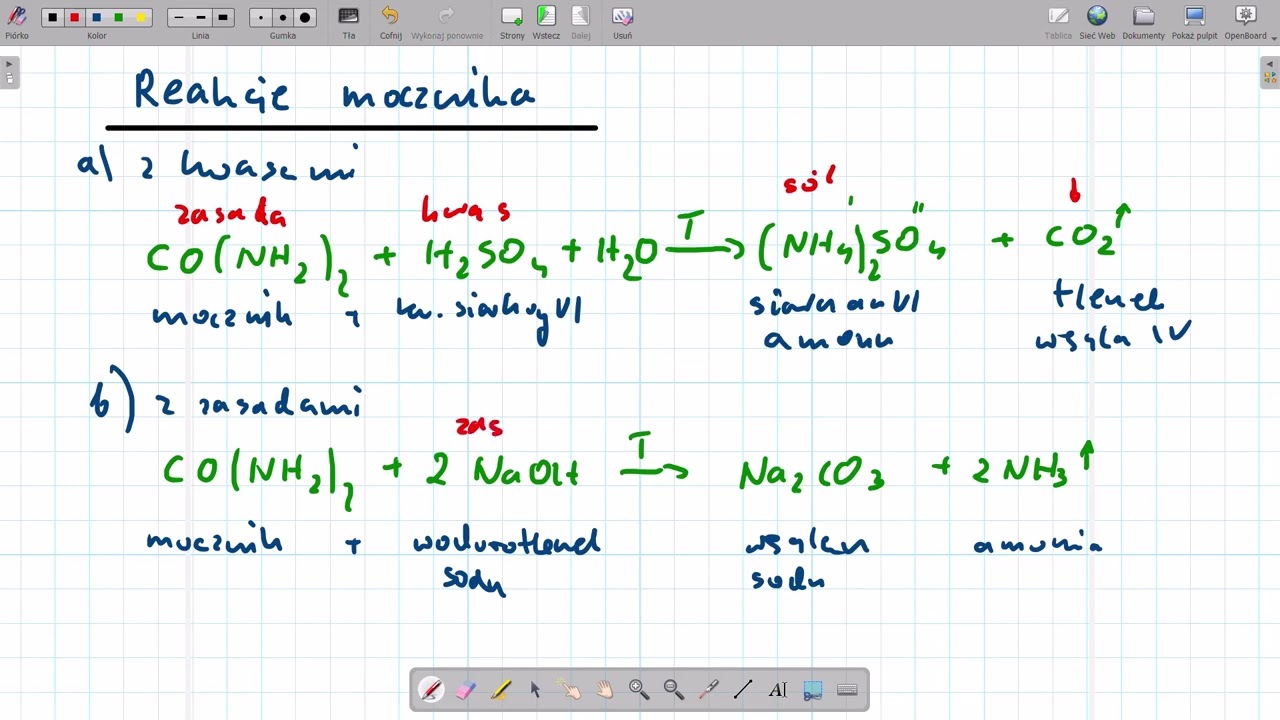 Piórko Kolor Linia Gumka Tła Cofnij Wykonaj ponownie Strony Wstecz Dalej Usuń Tablica Sieć Web Dokumenty Pokaż pulpit OpenBoard
Reakcje mocznika
a) z kwasami
zasada kwas sól b
CO(NH₂)₂ + H₂SO₄ + H₂O →T (NH₄)₂SO₄ + CO₂↑
mocznik + kw. siarkowy VI siarczan VI tlenek
amonu węgla IV
b) z zasadami
zas
CO(NH₂)₂ + 2 NaOH →T Na₂CO₃ + 2NH₃↑
mocznik + wodorotlenek węglan amonia
sodu sodu